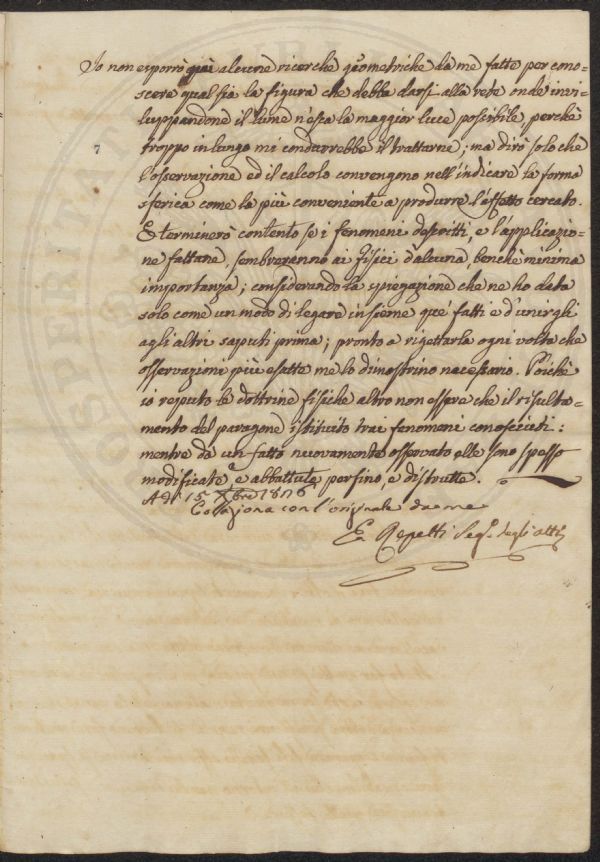 Io non esporrò quì alcune ricerche geometriche da me fatte per cono-
scere qual sia la figura che debba darsi alla rete onde invi-
luppandone il lume n'esca la maggior luce possibile perchè
troppo in lungo mi condurrebbe il trattarne; ma dirò solo che
7
l'osservazione ed il calcolo convengono nell'indicare la forma
sferica come la più conveniente a produrre l'effetto cercato.
E terminerò contento se i fenomeni descritti, e l'applicazio-
ne fattane, sembreranno ai Fisici d'alcuna, benchè minima
importanza; considerando la spiegazione che ne ho data
solo come un modo di legare insieme que' fatti e d'unirgli
agli altri saputi prima; pronto a rigettarla ogni volta che
osservazioni più esatte me lo dimostrino necessario. Poichè
io reputo le dottrine fisiche altro non essere che il risulta-
mento del paragone istituito trai fenomeni conosciuti:
mentre da un fatto nuovamente osservato elle sono spesso
modificate e abbattute persino, e distrutte.
A dì 15 Xbre 1816
Collaziona con l'originale da me
E. Repetti Seg.o degli atti
OSPERITA